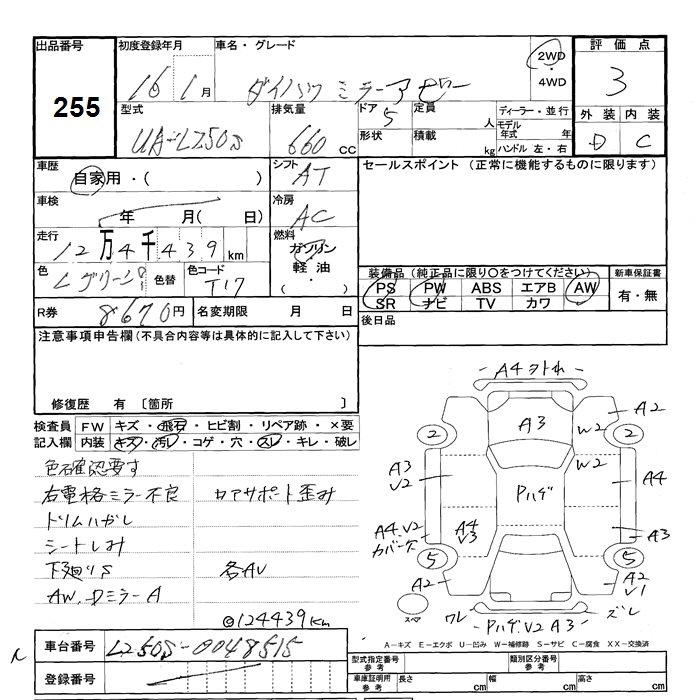 出品番号 初度登録年月 車名・グレード 評価点
255
16 1月 ダイハツ ミラーアヴィー 2WD・4WD 3
型式 排気量 ドア 定員 ディーラー・並行 外装 内装
UA-L250S 660cc 5 人 モデル年式 年 D C
形状 積載 kg ハンドル 左・右
車歴 シフト セールスポイント (正常に機能するものに限ります)
自家用・( ) AT
車検 冷房
年 月( 日) AC
走行 燃料
12万4千439km ガソリン
軽油
・( )
色 色替 色コード 装備品(純正品に限り○をつけてください) 新車保証書
T17 PS PW ABS エアB AW 有・無
SR ナビ TV カワ
R券 8670円 名変期限 月 日 後日品
注意事項申告欄(不具合内容等は具体的に記入して下さい)
修復歴 有 〔箇所
検査員 FW キズ・飛石・ヒビ割・リペア跡・×要
記入欄 内装 キズ・汚レ・コゲ・穴・スレ・キレ・破レ
色確認要す
右電格ミラー不良 コアサポート歪み
ドリムハガレ
シートしみ
下廻りS 各AU
AW,Dミラー A
◎124439km
A4ヨトれ
A3
A2
W2
2
2
W2
A3
U2
Pハゲ
A4
A4.V2
カバー欠
A4
V3
A3
5
5
A2
A2
V1
スペア
ワレ
ズレ
Pハゲ.V2 A3
A-キズ E-エクボ U-凹み W-補修跡 S-サビ C-腐食 XX-交換済
車台番号 L250S-0048515
型式指定番号 参考 類別区分番号 参考
登録番号
車庫証明用 参考 長さ cm 幅 cm 高さ cm